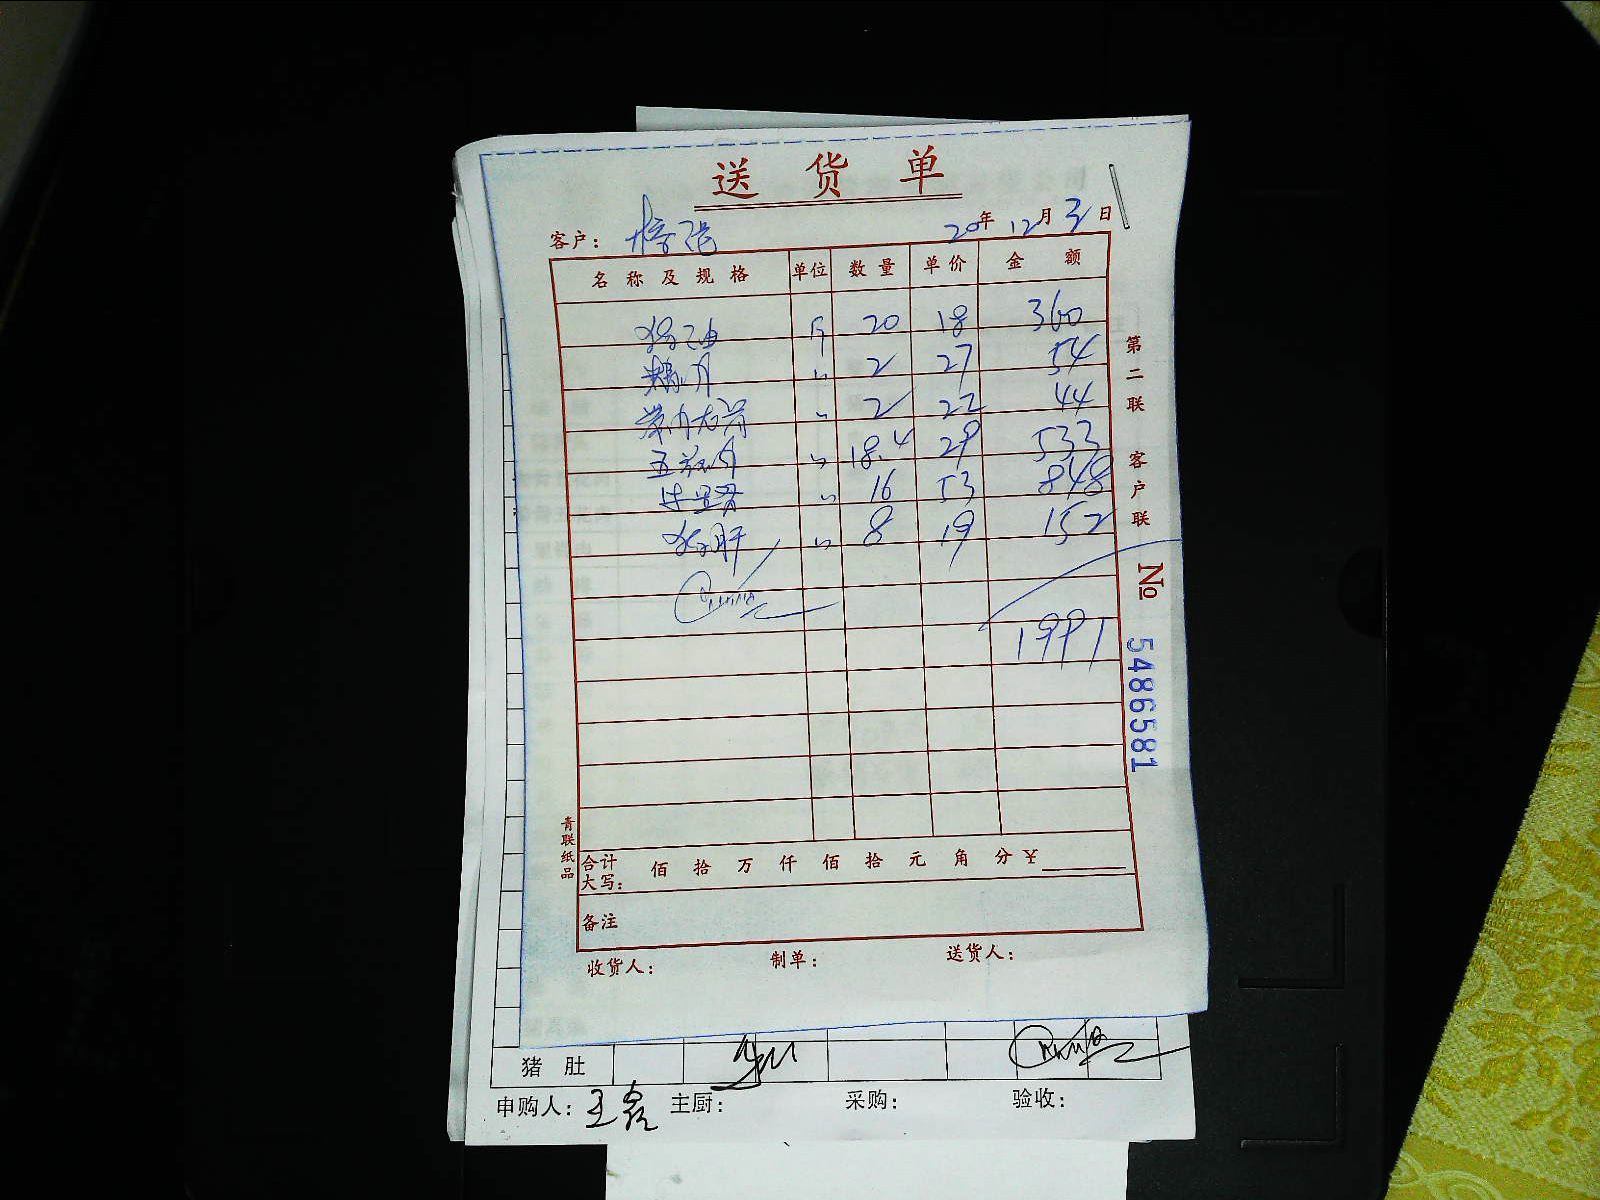 送货单
客户： 20年12月3日
名称及规格 单位 数量 单价 金额
猪油 斤 20 18 360
精肉 〃 2 27 54
带肉龙骨 〃 2 22 44
五花肉 〃 18.4 29 533
〃 16 53 848
猪肝 〃 8 19 152
1991
合计大写： 佰 拾 万 仟 佰 拾 元 角 分 ¥
备注
收货人： 制单： 送货人：
第二联 客户联
No 5486581
青联纸品
猪肚
申购人：王磊 主厨： 采购： 验收：